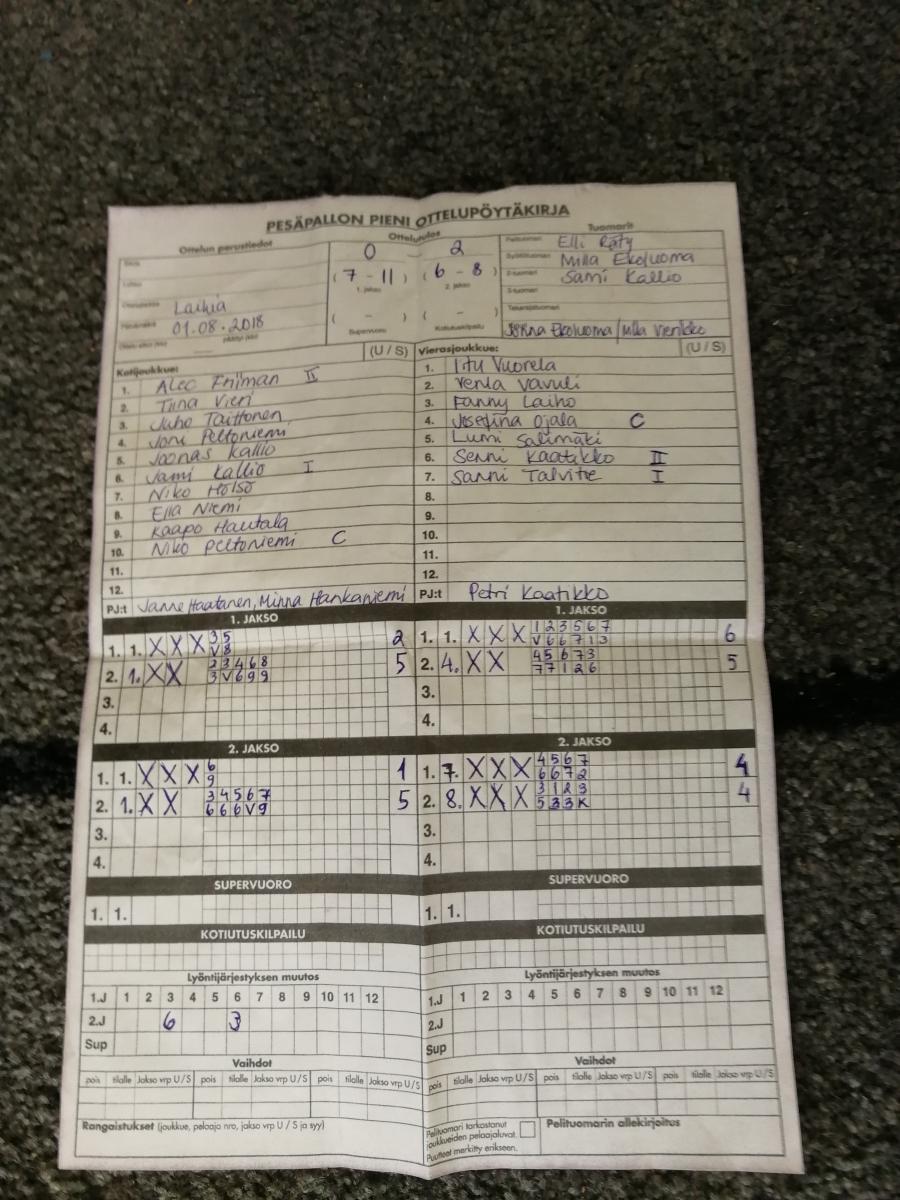 PESÄPALLON PIENI OTTELUPÖYTÄKIRJA
Ottelun perustiedot
Ottelutulos
Tuomarit
0 - 2
(7 - 11) (6 - 8)
1. jakso 2. jakso
( - ) ( - )
Supervuoro Kotiutuskilpailu
Laihia
01.08.2018
Pelituomari Elli Räty
Syöttötuomari Milla Ekoluoma
2-tuomari Sami Kallio
3-tuomari
Takarajatuomari
Jonna Ekoluoma / Milla
Kotijoukkue: (U / S)
1. Alec Friiman II
2. Tiina Vieri
3. Juho Taittonen
4. Joni Peltoniemi
5. Joonas Kallio
6. Jami Kallio I
7. Niko Holso
8. Ella Niemi
9. Kaapo Hautala
10. Niko Peltoniemi C
11.
12.
PJ:t Janne Haatanen, Minna Hankaniemi
Vierasjoukkue: (U / S)
1. Iitu Vuorela
2. Venla Vavuli
3. Fanny Laiho
4. Josefina Ojala C
5. Lumi Salimäki
6. Senni Kaatikko II
7. Sanni Talvitie I
8.
9.
10.
11.
12.
PJ:t Petri Kaatikko
1. JAKSO
1. 1. X X X 3 5 2
V 8
2. 1. X X 2 3 4 6 8 5
3 V 6 9 9
3.
4.
1. JAKSO
1. 1. X X X 1 2 3 5 6 7 6
V 6 6 7 1 3
2. 4. X X 4 5 6 7 3 5
7 7 1 2 6
3.
4.
2. JAKSO
1. 1. X X X 6 1
9
2. 1. X X 3 4 5 6 7 5
6 6 6 V 9
3.
4.
2. JAKSO
1. 7. X X X 4 5 6 7 4
6 6 7 2
2. 8. X X X 3 1 2 3 4
5 3 3 K
3.
4.
SUPERVUORO
1. 1.
SUPERVUORO
1. 1.
KOTIUTUSKILPAILU
KOTIUTUSKILPAILU
Lyöntijärjestyksen muutos
1.J 1 2 3 4 5 6 7 8 9 10 11 12
2.J 6 3
Sup
Lyöntijärjestyksen muutos
1.J 1 2 3 4 5 6 7 8 9 10 11 12
2.J
Sup
Vaihdot
pois tilalle Jakso vrp U / S pois tilalle Jakso vrp U / S pois tilalle Jakso vrp U / S
Vaihdot
pois tilalle Jakso vrp U / S pois tilalle Jakso vrp U / S pois tilalle Jakso vrp U / S
Rangaistukset (joukkue, pelaaja nro, jakso vrp U / S ja syy)
Pelituomari tarkastanut
joukkueiden pelaajaluvat.
Puutteet merkitty erikseen.
Pelituomarin allekirjoitus